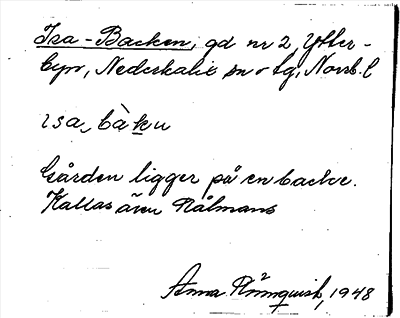 Isa-Backen, gd nr 2, Ytter-
byn, Nederkalix sn o tg, Norrb. l
isa, bàku
Gården ligger på en backe.
Kallas även Pålmans
Anna Rönnquist, 1948